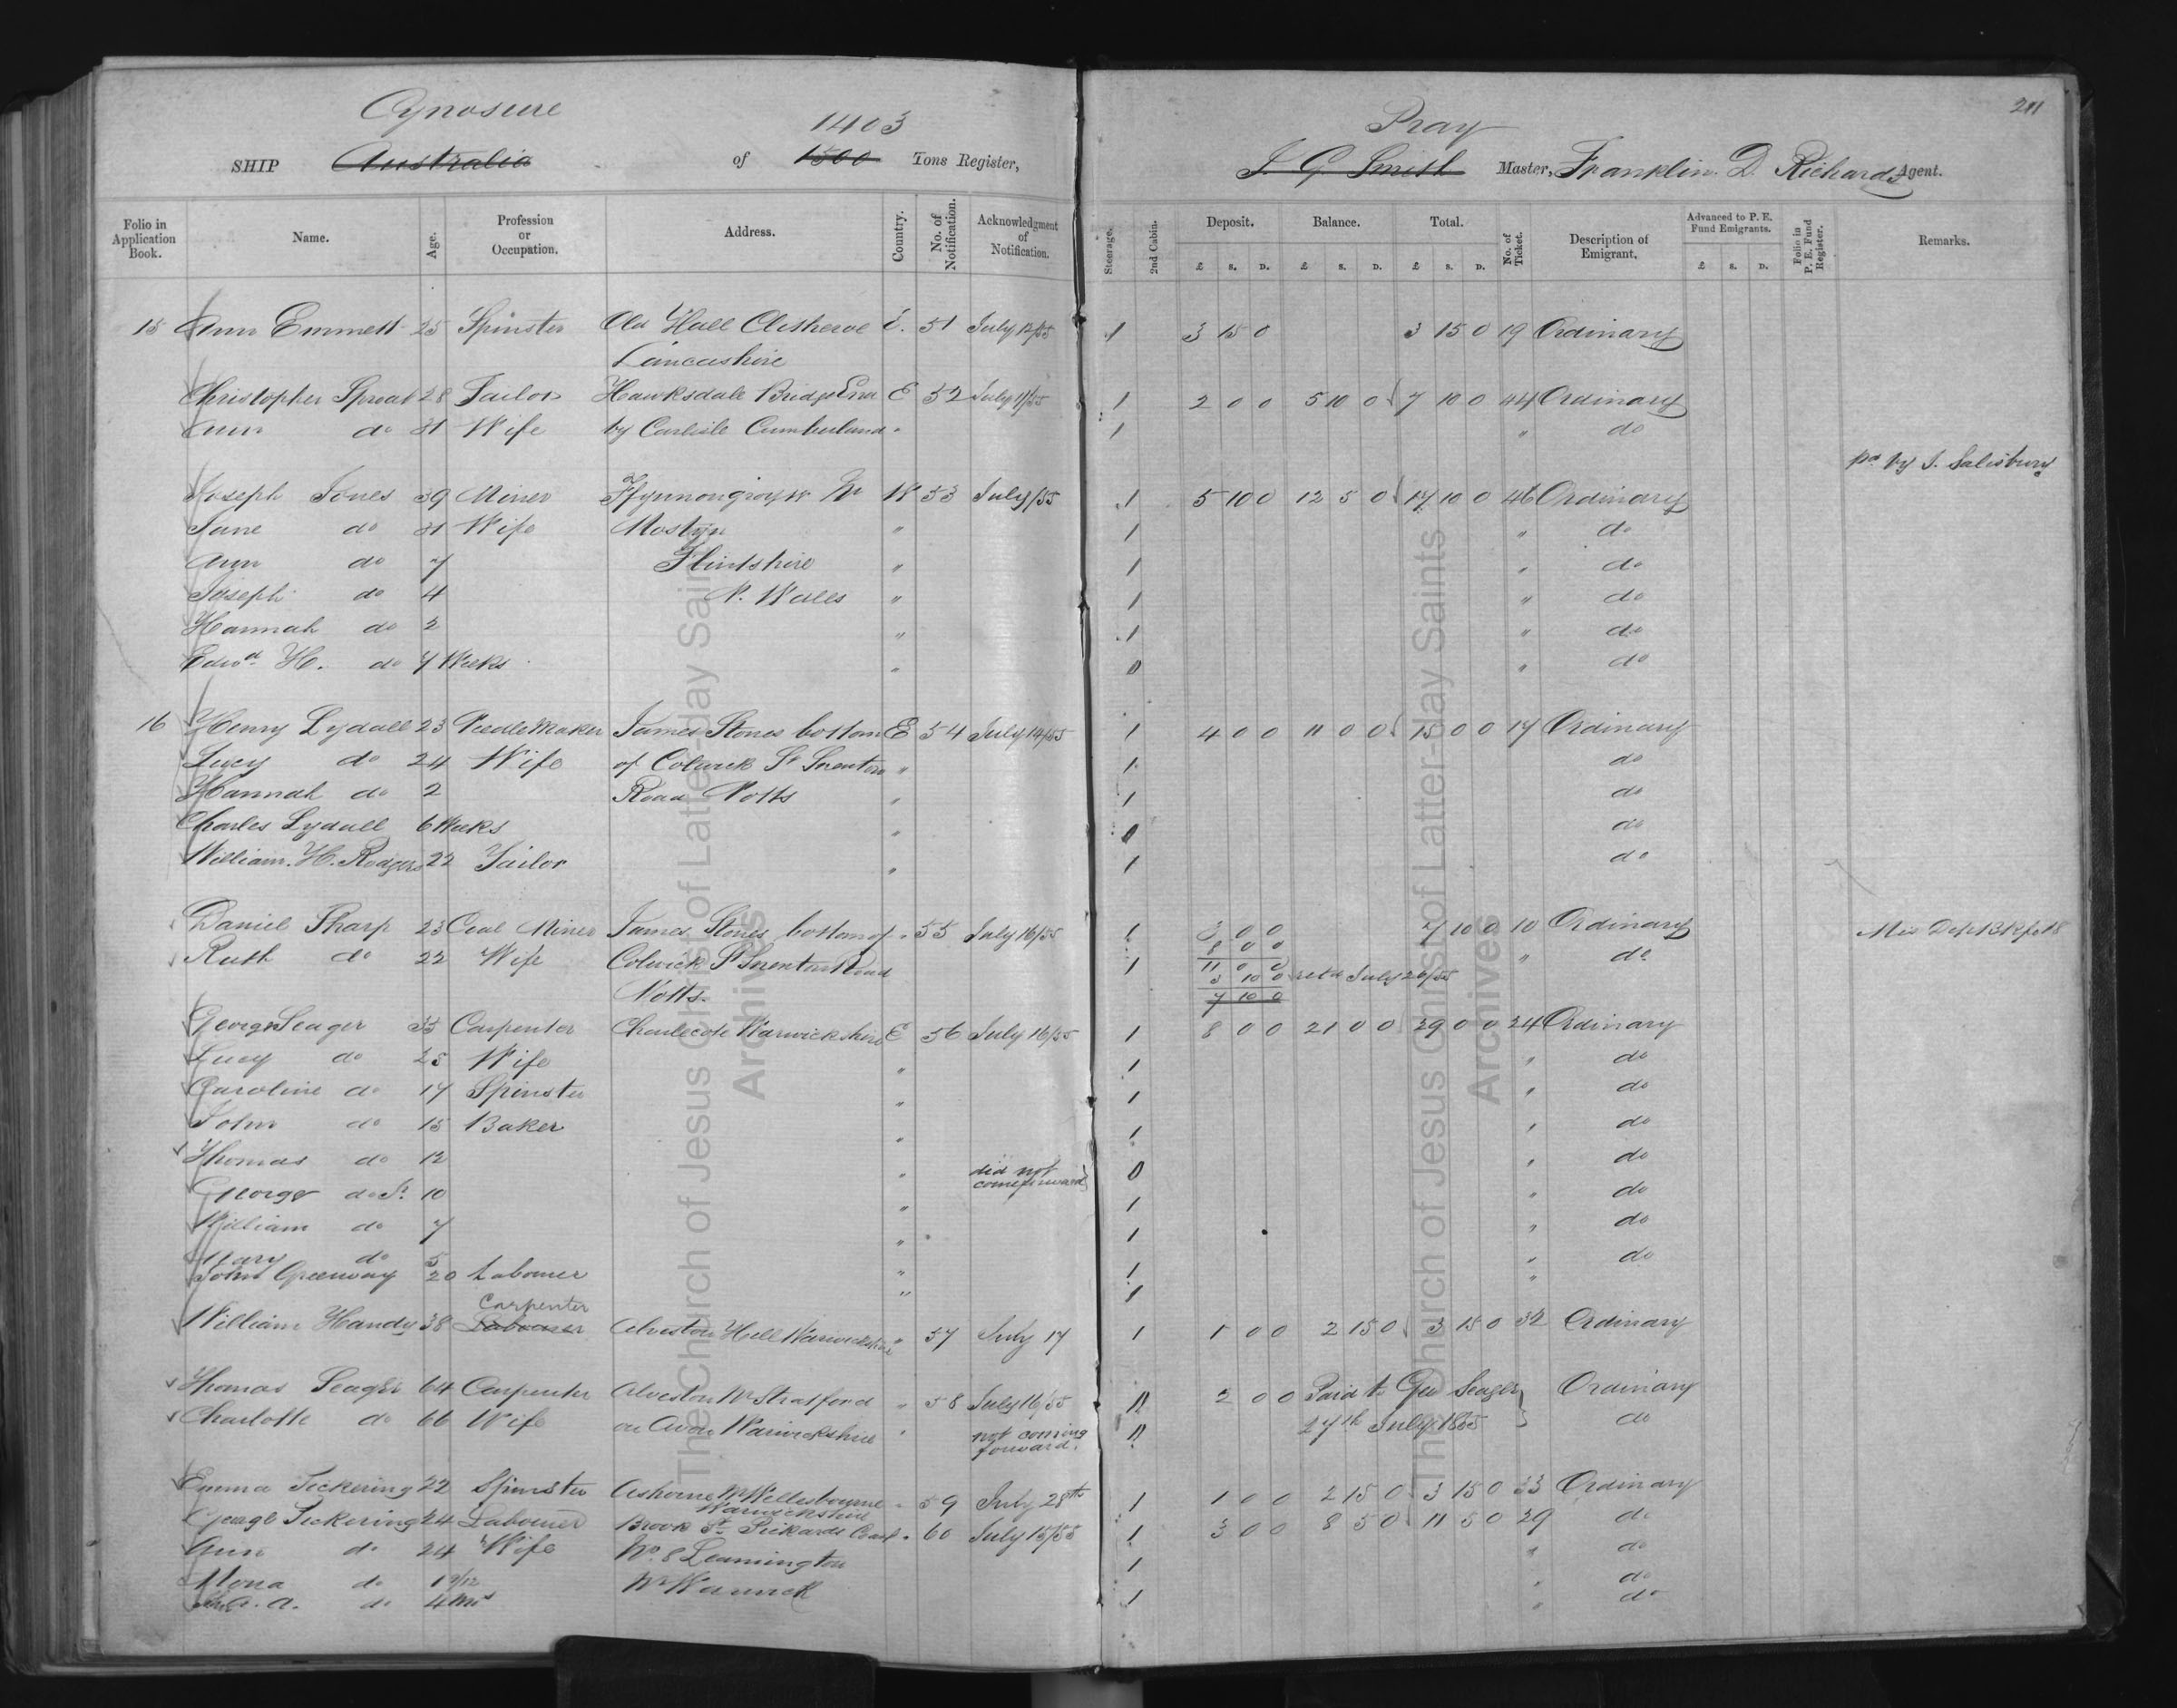 Cynosure 1403 Pray 211
SHIP Australia of 1500 Tons Register, J. G Smith Master, Franklin. D. Richards Agent.
Folio in Application Book. Name. Age. Profession or Occupation. Address. Country. No. of Notification. Acknowledgment of Notification. Steerage. 2nd Cabin. Deposit. Balance. Total. No. of Ticket. Description of Emigrant. Advanced to P. E. Fund Emigrants. Folio in P. E. Fund Register. Remarks.
£ S. D. £ S. D. £ S. D. £ S. D.
15 Ann Emmett 25 Spinster Old Hall Clitheroe E. 51 July 12/55 1 3 15 0 3 15 0 19 Ordinary
Lancashire
Christopher Sproat 28 Tailor Hawksdale Bridge End E 52 July 11/55 1 2 0 0 5 10 0 7 10 0 44 Ordinary
Ann do 31 Wife by Carlisle Cumberland " 1 " do
pd by J. Salisbury
Joseph Jones 39 Miner Nr W 53 July /55 1 5 10 0 12 5 0 17 10 0 46 Ordinary
Jane do 31 Wife Mostyn " 1 " do
Ann do 7 Flintshire " 1 " do
Joseph do 4 N. Wales " 1 " do
Hannah do 2 " 1 " do
Edwd H. do 7 Weeks " 0 " do
16 Henry Lydall 23 Needle Maker James Stones bottom E 54 July 14/55 1 4 0 0 11 0 0 15 0 0 17 Ordinary
Lucy do 24 Wife of Colwick St Snenton " 1 do
Hannah do 2 Road Notts " 1 do
Charles Lydall 6 Weeks " 0 do
William. H. Rodgers 22 Tailor " 1 do
Daniel Sharp 23 Coal Miner James Stones bottom of " 55 July 16/55 1 3 0 0 7 10 0 10 Ordinary
Ruth do 22 Wife Colwick St Snenton Road 1 8 0 0 " do
11 0 0
3 10 0 retd July 26/55
Notts. 7 10 0
George Seager 35 Carpenter Charlecote Warwickshire E 56 July 16/55 1 8 0 0 21 0 0 29 0 0 24 Ordinary
Lucy do 28 Wife " 1 " do
Caroline do 17 Spinster " 1 " do
John do 15 Baker " 1 " do
Thomas do 12 " did not come forward 0 " do
George do 10 " 1 " do
William do 7 " 1 " do
Mary do 5 " 1 " do
John Greenway 20 Labourer " 1 "
Carpenter
William Handy 38 Labourer Alveston Hill Warwickshire " 57 July 17 1 1 0 0 2 15 0 3 15 0 32 Ordinary
Thomas Seager 64 Carpenter Alveston Nr Stratford " 58 July 16/55 2 0 0 Paid to Geo Seager Ordinary
Charlotte do 66 Wife on Avon Warwickshire " not coming forward. 27th July 1855 do
Emma Tickering 22 Spinster Ashorne Nr Wellesbourne " 59 July 28th 1 1 0 0 2 15 0 3 15 0 33 Ordinary
Warwickshire
George Tickering 24 Labourer Brook St Pickards Court " 60 July 15/55 1 3 0 0 8 5 0 11 5 0 29 do
Ann do 24 Wife No. 8 Leamington 1 " do
Mona do Nr Warwick 1 " do
do 4 Ms " do
The Church of Jesus Christ of Latter-day Saints
Archives
The Church of Jesus Christ of Latter-day Saints
Archives